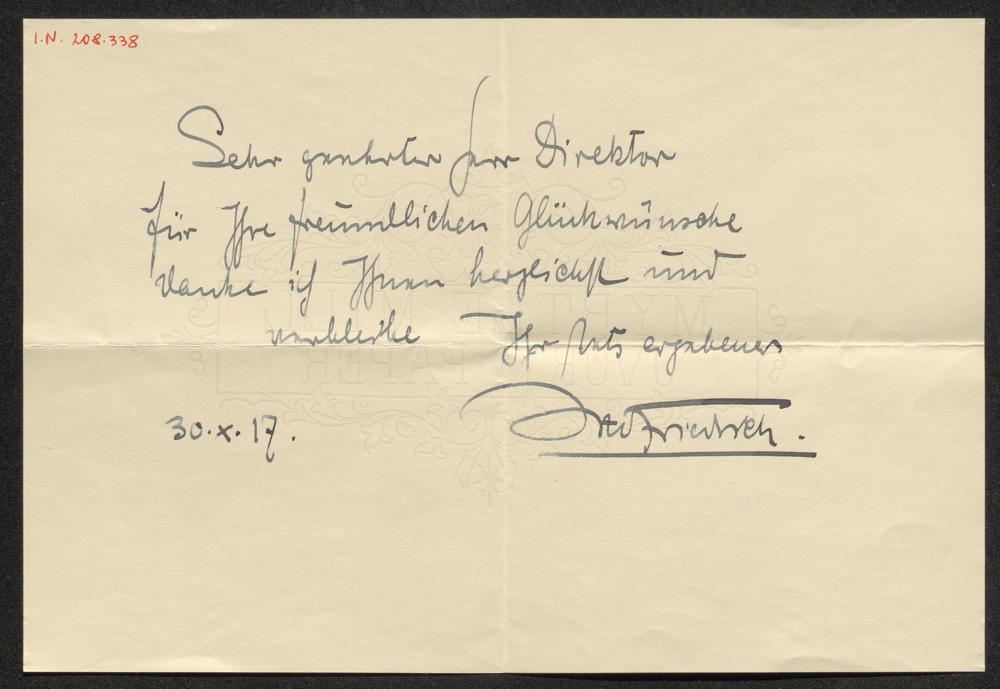 I.N. 208.338
Sehr geehrter Herr Direktor
für Ihre freundlichen Glückwünsche
danke ich Ihnen herzlichst und
verbleibe Ihr stets ergebener
Otto Friedrich.
30.X.17.